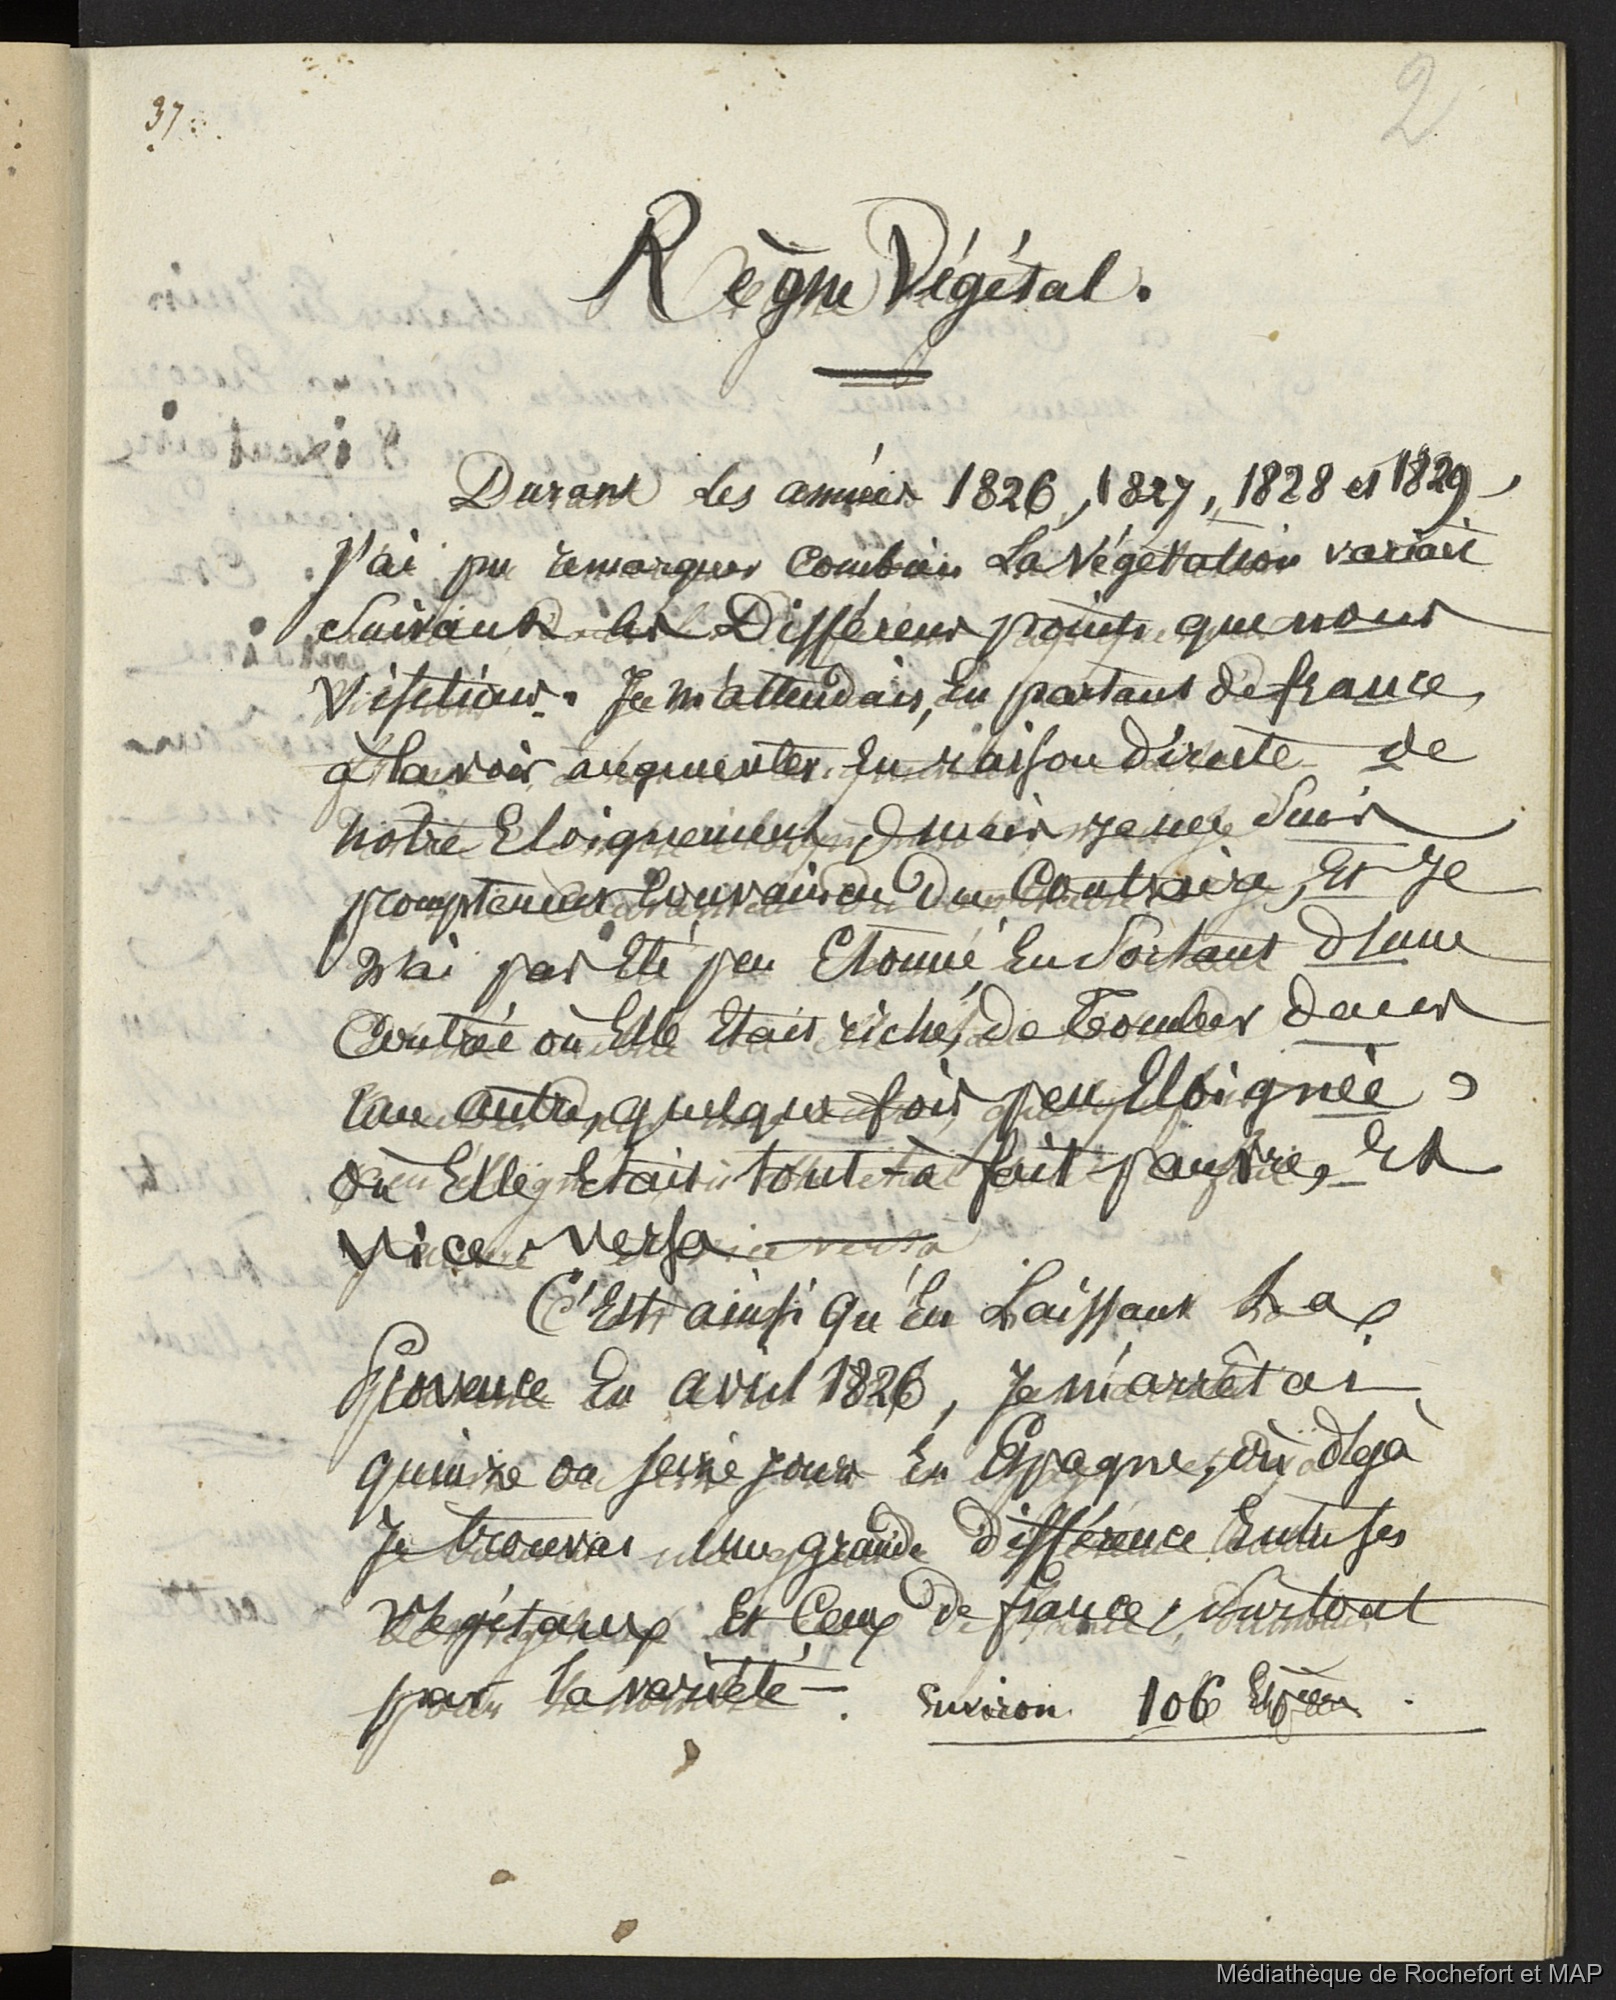 37
2
Règne Végétal.
Durant les années 1826, 1827, 1828 et 1829,
j'ai pu remarquer combien la végétation variait
suivant les différens points que nous
visitions. Je m'attendais, en partant de france,
à la voir augmenter en raison directe de
notre Eloignement, mais je me suis
promptement convaincu du Contraire, et je
n'ai pas été peu Etonné, en sortant d'une
Contrée où Elle était riche, de tomber dans
une autre, quelque fois peu Eloignée,
où Elle était tout-à-fait pauvre, et
vice versa
C'Est ainsi qu'en Laissant La
Provence en avril 1826, je m'arrêtai
quinze ou seize jours en Espagne, où déjà
je trouvai une grande différence entre ses
végétaux et Ceux de france, surtout
par la variété. Environ 106 Espèces.
Médiathèque de Rochefort et MAP